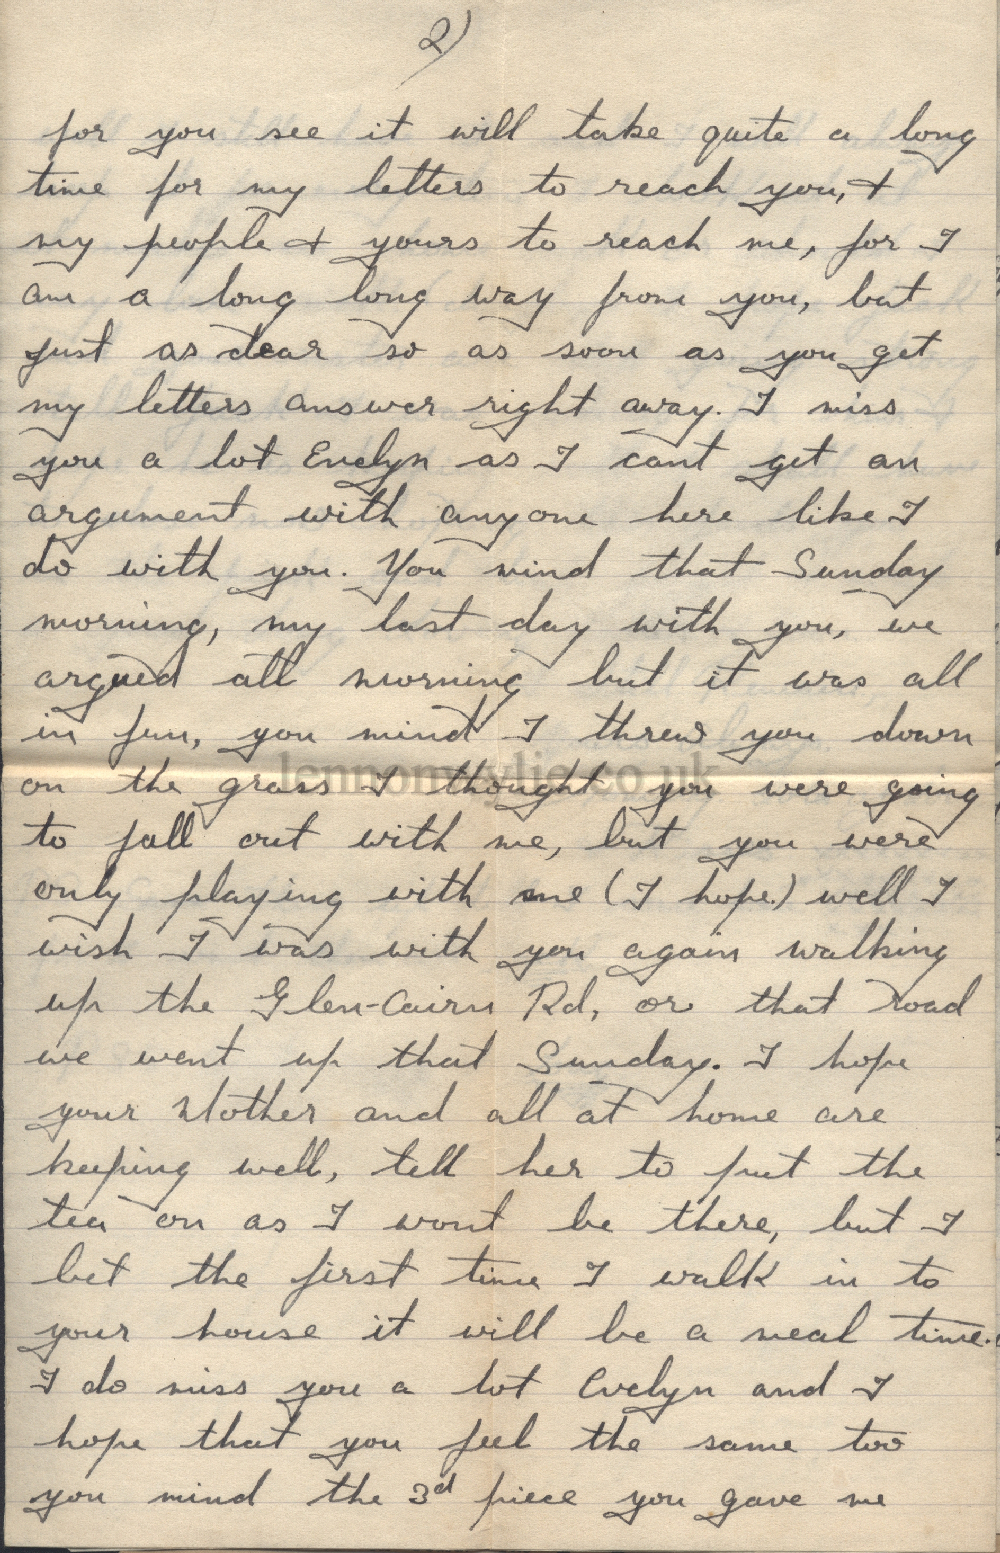 2)
for you see it will take quite a long
time for my letters to reach you, +
my people + yours to reach me, for I
am a long long way from you, but
just as dear so as soon as you get
my letters answer right away. I miss
you a lot Evelyn as I cant get an
argument with anyone here like I
do with you. You mind that Sunday
morning, my last day with you, we
argued all morning but it was all
in fun, you mind I threw you down
on the grass I thought you were going
lennonwylie.co.uk
to fall out with me, but you were
only playing with me (I hope.) well I
wish I was with you again walking
up the Glen-Cairn Rd, or that road
we went up that Sunday. I hope
your Mother and all at home are
keeping well, tell her to put the
tea on as I wont be there, but I
bet the first time I walk in to
your house it will be a meal time.
I do miss you a lot Evelyn and I
hope that you feel the same too
you mind the 3rd piece you gave me